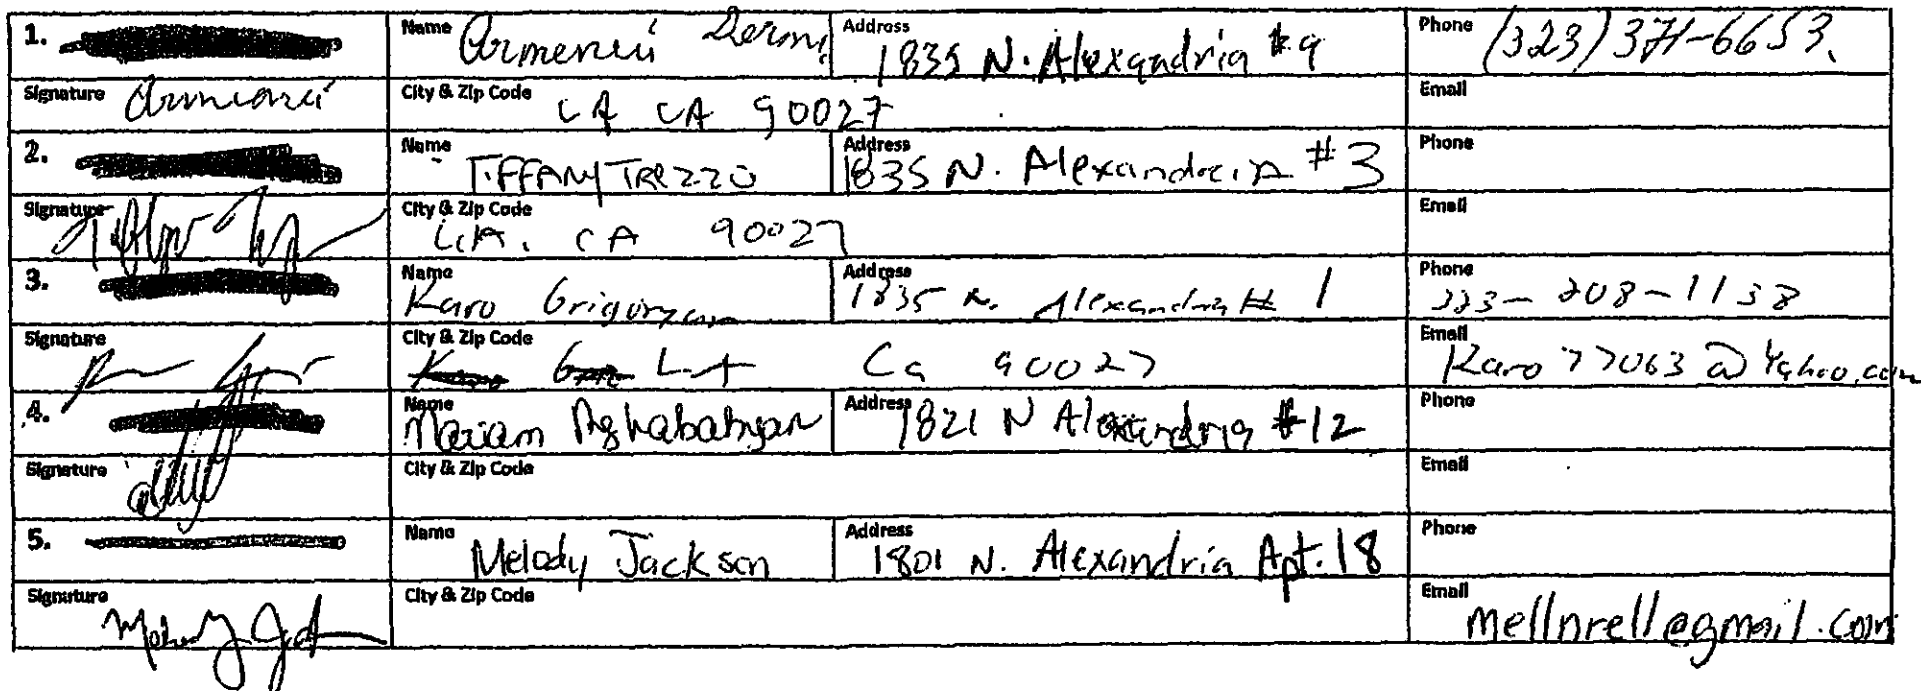 1. Name Address 1835 N. Alexandria #9 Phone (323) 371-6653.
Signature City & Zip Code CA 90027 Email
2. Name TIFFANY TREZZO Address 1835 N. Alexandria #3 Phone
Signature City & Zip Code L.A. CA 90027 Email
3. Name Karo Grigoryan Address 1835 N. Alexandria # 1 Phone
Signature City & Zip Code LA Ca 90027 Email Karo77063@Yahoo.com
4. Name Mariam Aghababyan Address 1821 N Alexandria #12 Phone
Signature City & Zip Code Email
5. Name Melody Jackson Address 1801 N. Alexandria Apt. 18 Phone
Signature City & Zip Code Email mellnrell@gmail.com